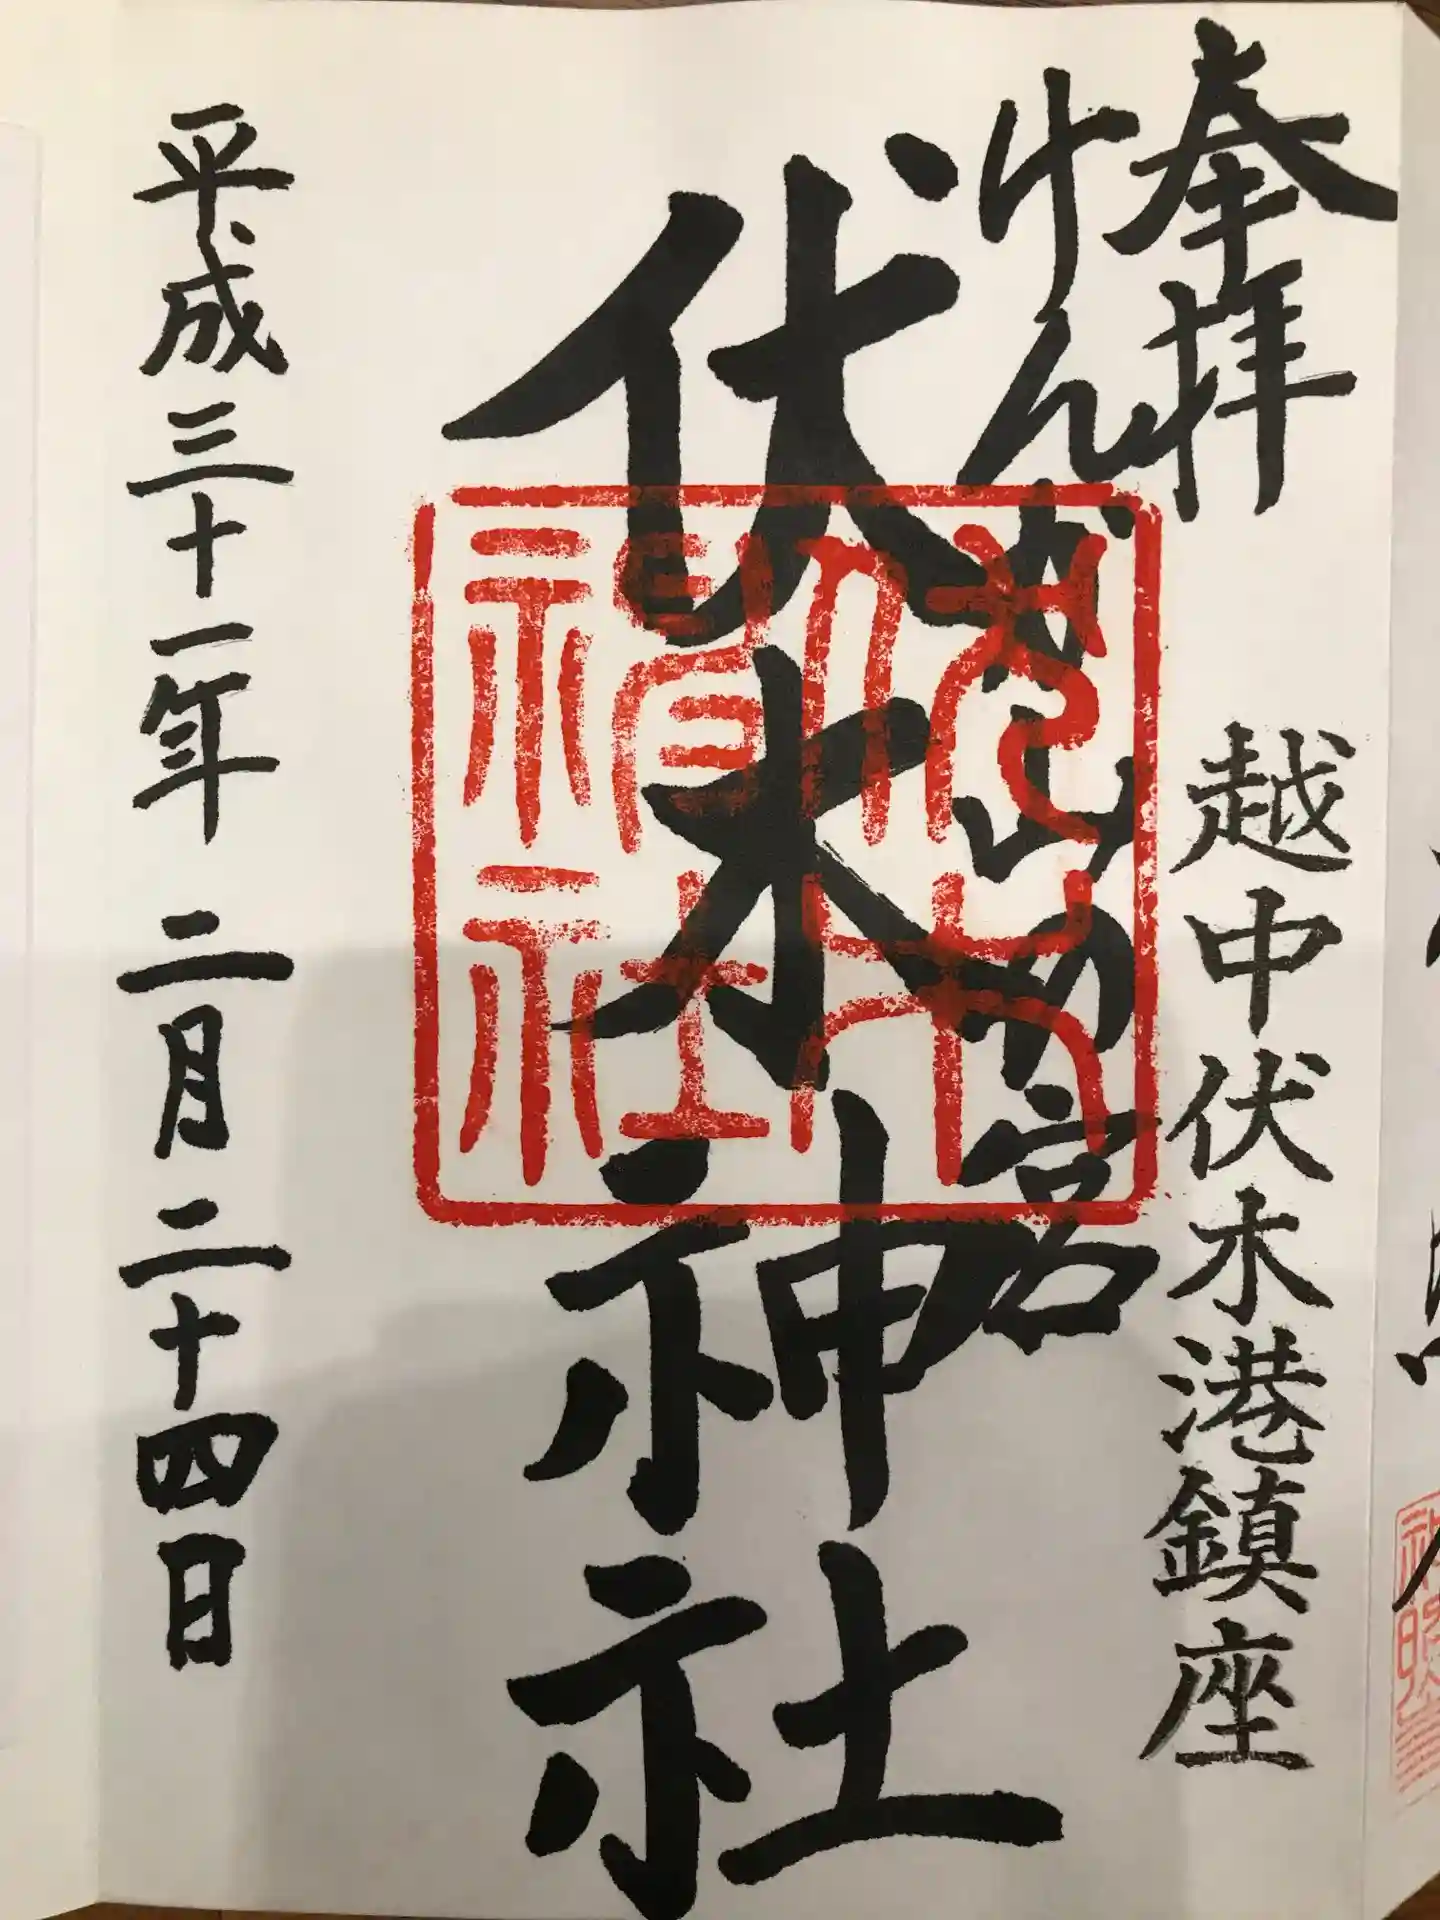 奉拝
越中伏木港鎮座
けんか山の宮
伏木神社
伏木神社
平成三十一年二月二十四日